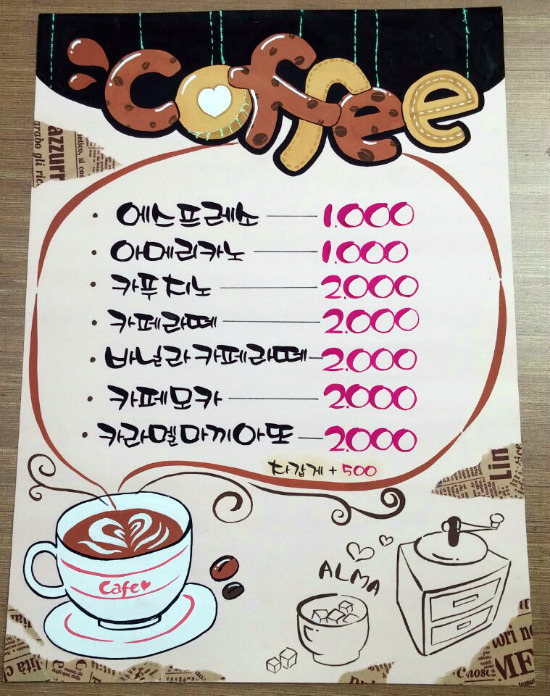 Coffee
에스프레소 1.000
아메리카노 1.000
카푸치노 2.000
카페라떼 2.000
바닐라 카페라떼 2.000
카페모카 2.000
카라멜마끼아또 2.000
차갑게 + 500
Cafe
ALMA
azzurr
Lin
tori no
ME